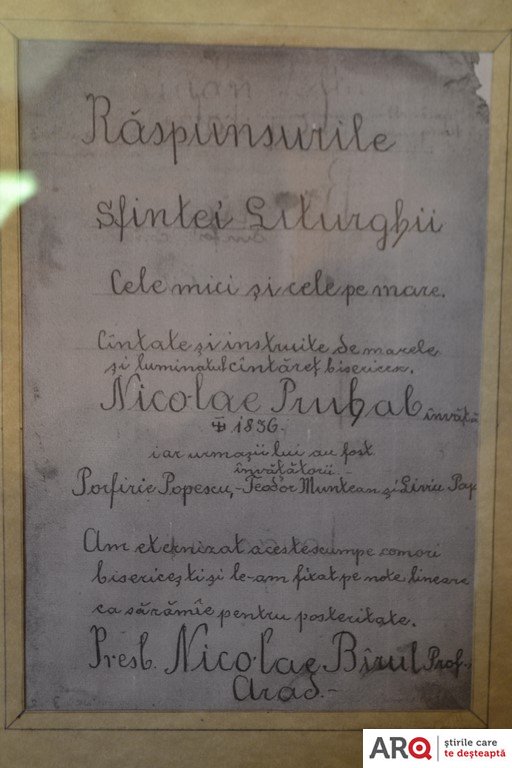 Răspunsurile
Sfintei Liturghii
Cele mici și cele pe mare.
Cîntate și instruite de marele
și luminatul cîntăreț bisericex.
Nicolae Pruhab învăță
1836.-
iar urmașii lui au fost
învătătorii
Porfirie Popescu, - Teodor Muntean și Liviu Pap
Am eternizat aceste scumpe comori
bisericești și le-am fixat pe note lineare
ca să rămîie pentru posteritate.
Presb. Nicolae Bîrul Prof.
Arad.-
ARQ știrile care
te deșteaptă